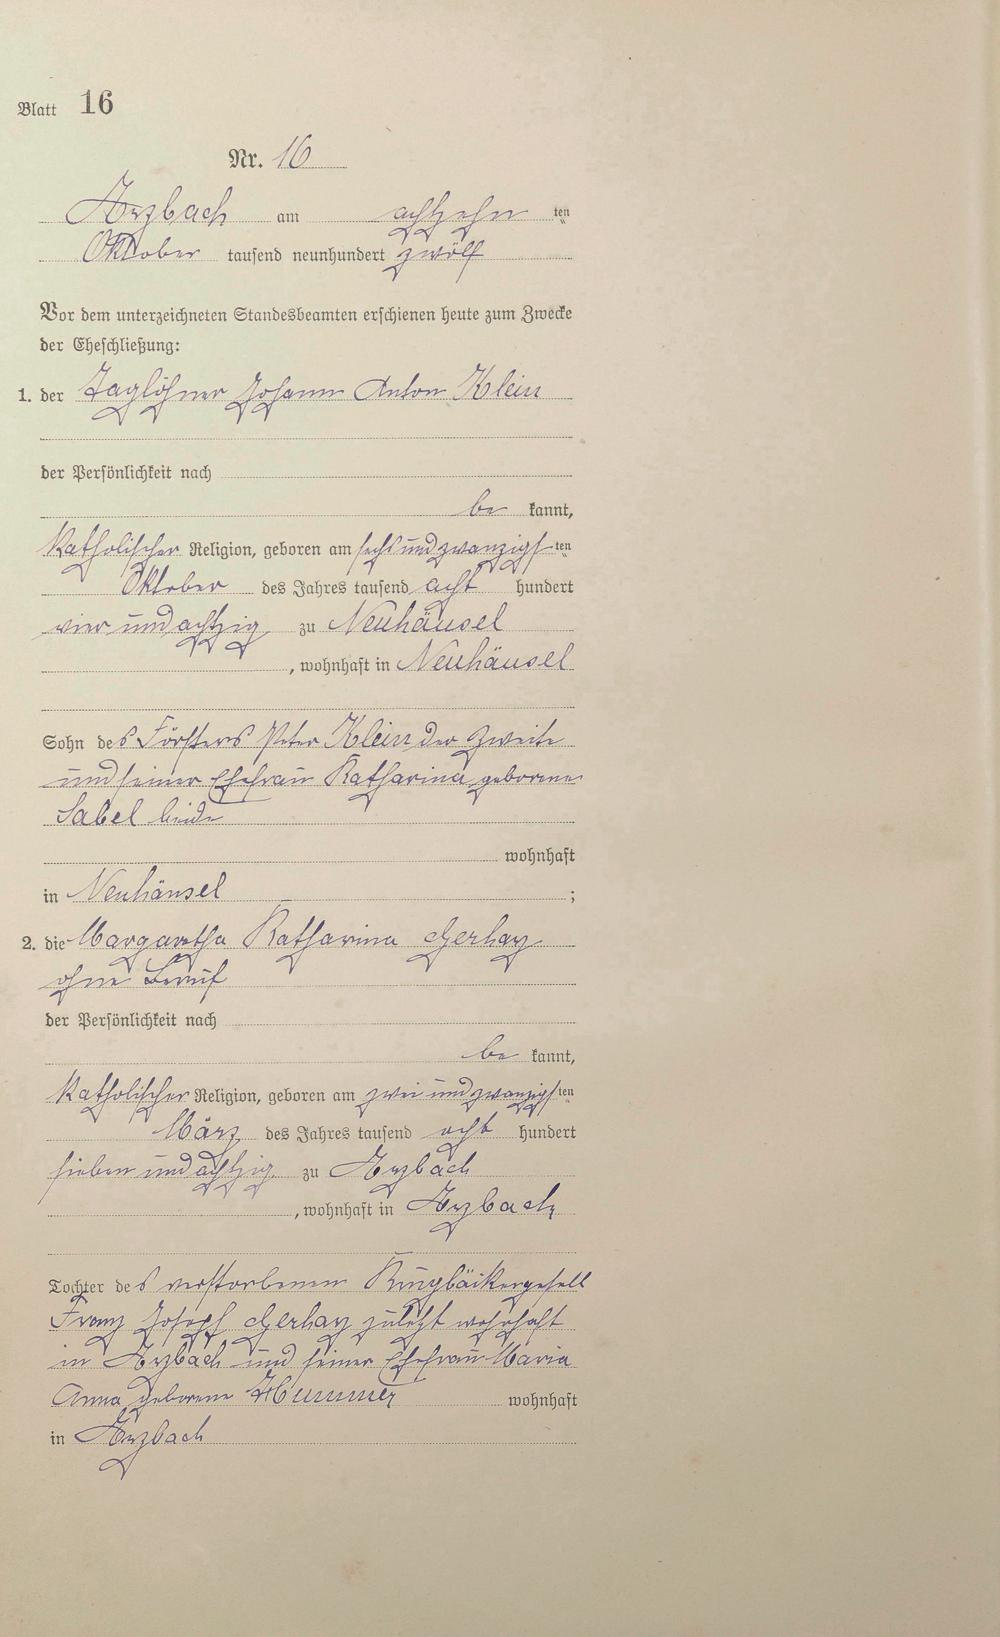 Blatt 16
Nr. 16
Arzbach am achtzehn ten
Oktober tausend neunhundert zwölf
Vor dem unterzeichneten Standesbeamten erschienen heute zum Zwecke
der Eheschließung:
1. der Taglöhner Johann Anton Klein
der Persönlichkeit nach
be kannt,
katholischer Religion, geboren am sechs und zwanzigs ten
Oktober des Jahres tausend acht hundert
vier und achtzig zu Neuhäusel
, wohnhaft in Neuhäusel
Sohn des Försters Peter Klein der Zweite
und seiner Ehefrau Katharina geborene
Sabel beide
wohnhaft
in Neuhäusel ;
2. die Margaretha Katharina Gerharz
ohne Beruf
der Persönlichkeit nach
be kannt,
katholischer Religion, geboren am zwei und zwanzigs ten
März des Jahres tausend acht hundert
sieben und achtzig zu Arzbach
, wohnhaft in Arzbach
Tochter des verstorbenen
Franz Joseph Gerharz zuletzt wohnhaft
in Arzbach und seiner Ehefrau Maria
Anna geborene wohnhaft
in Arzbach